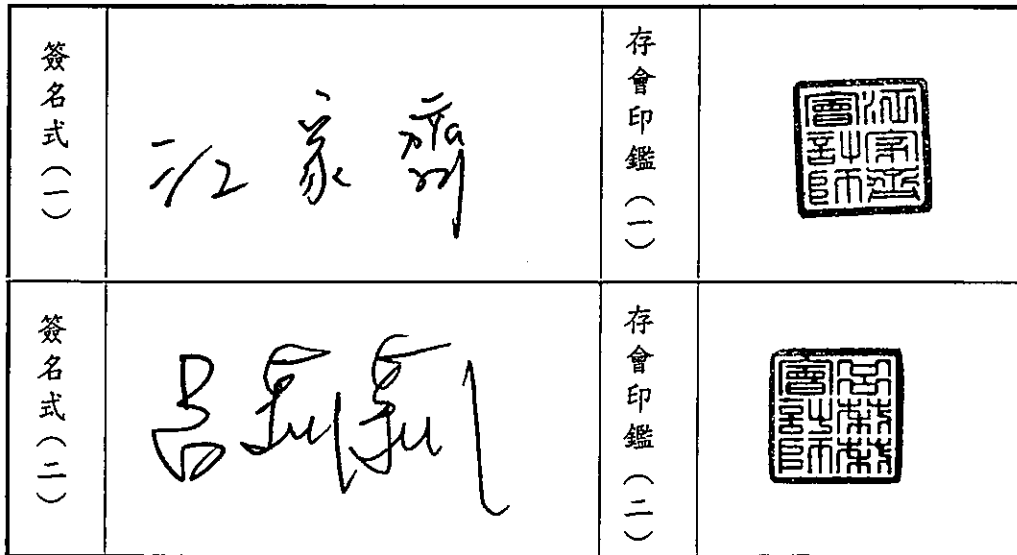 簽名式(一)
江家齊
存會印鑑(一)
江家齊
會計師
簽名式(二)
呂
存會印鑑(二)
呂
會計師